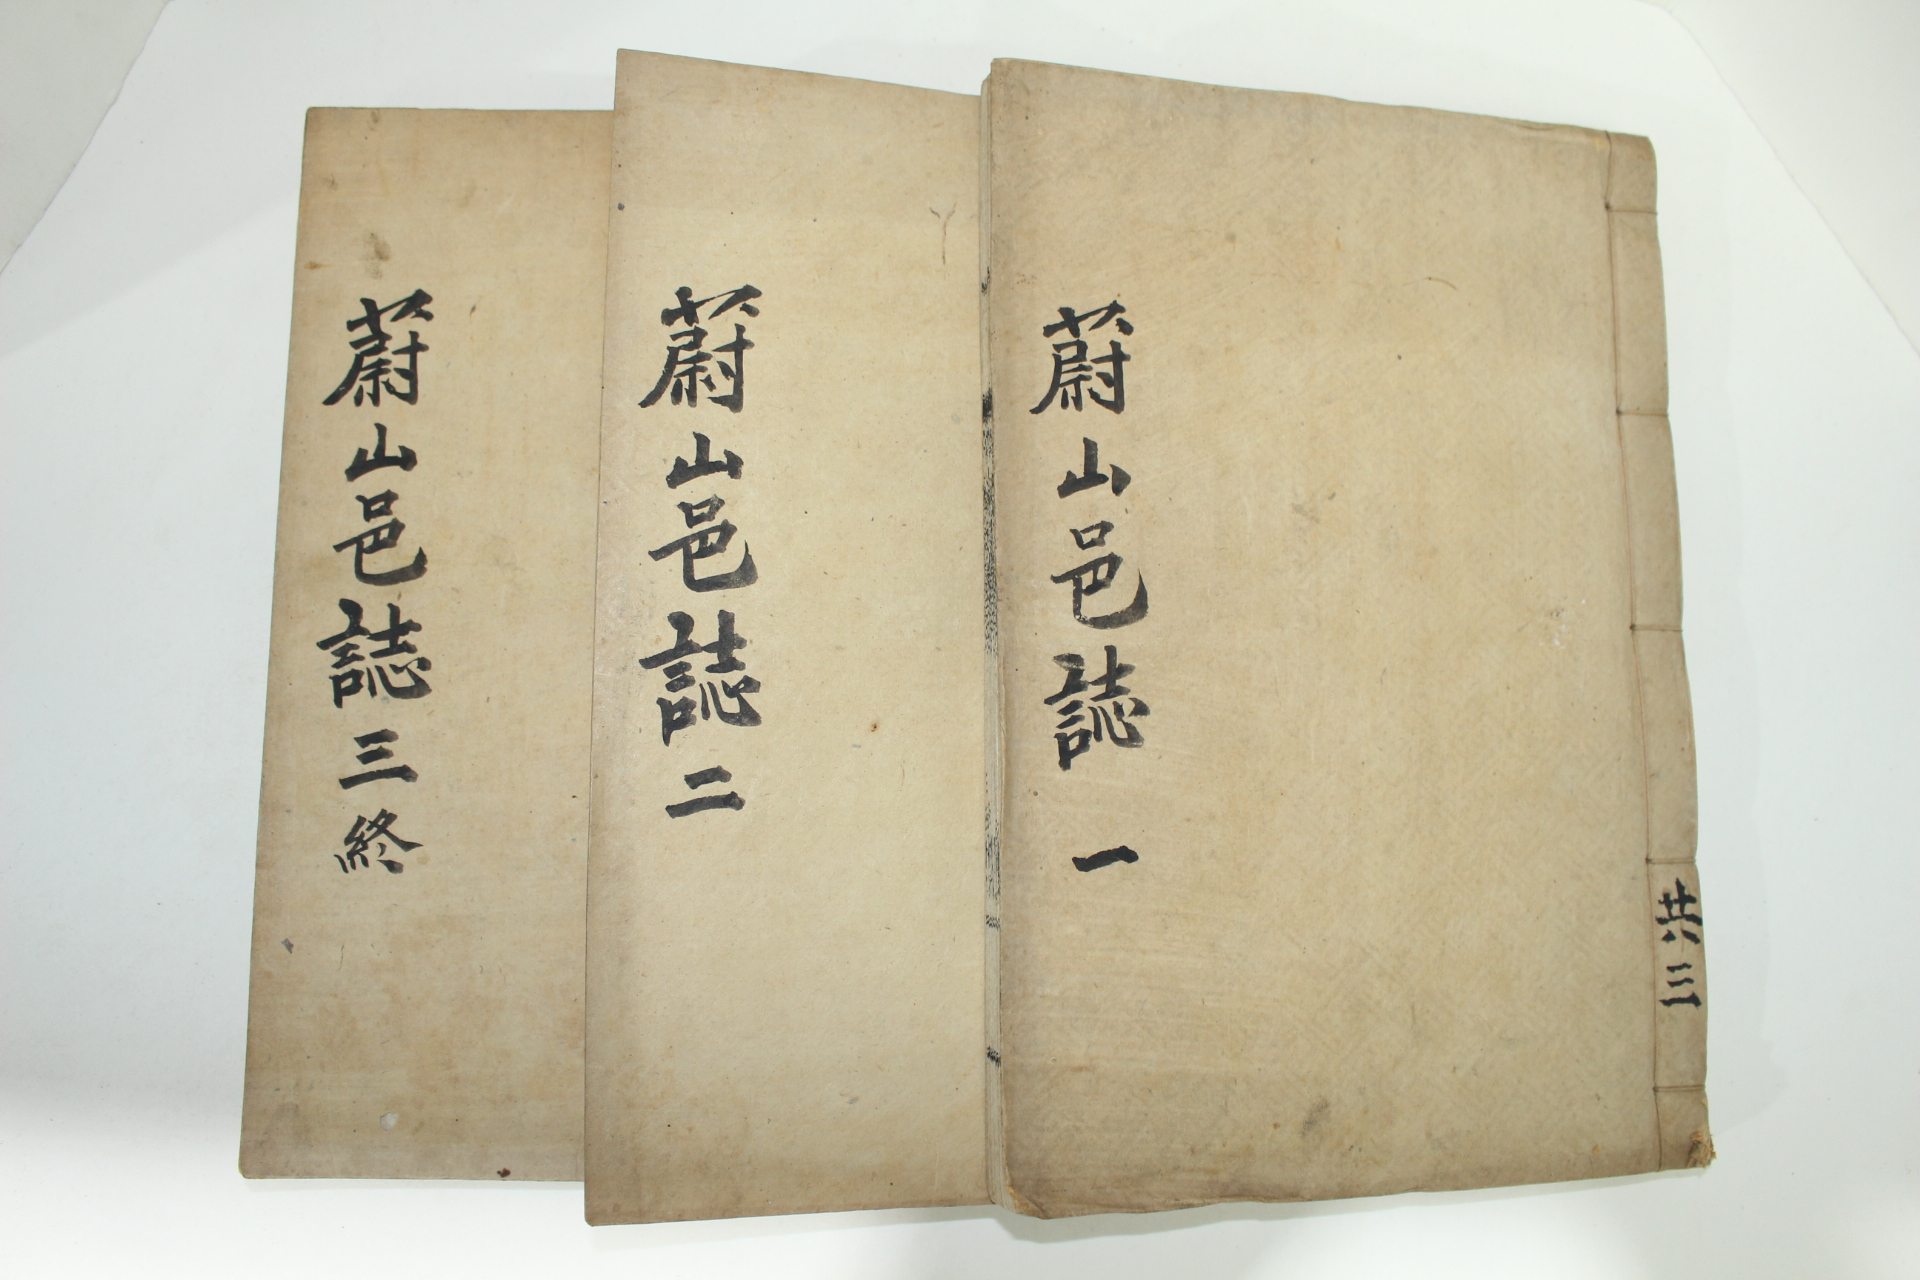 共三
蔚山邑誌 一
蔚山邑誌 二
蔚山邑誌 三終